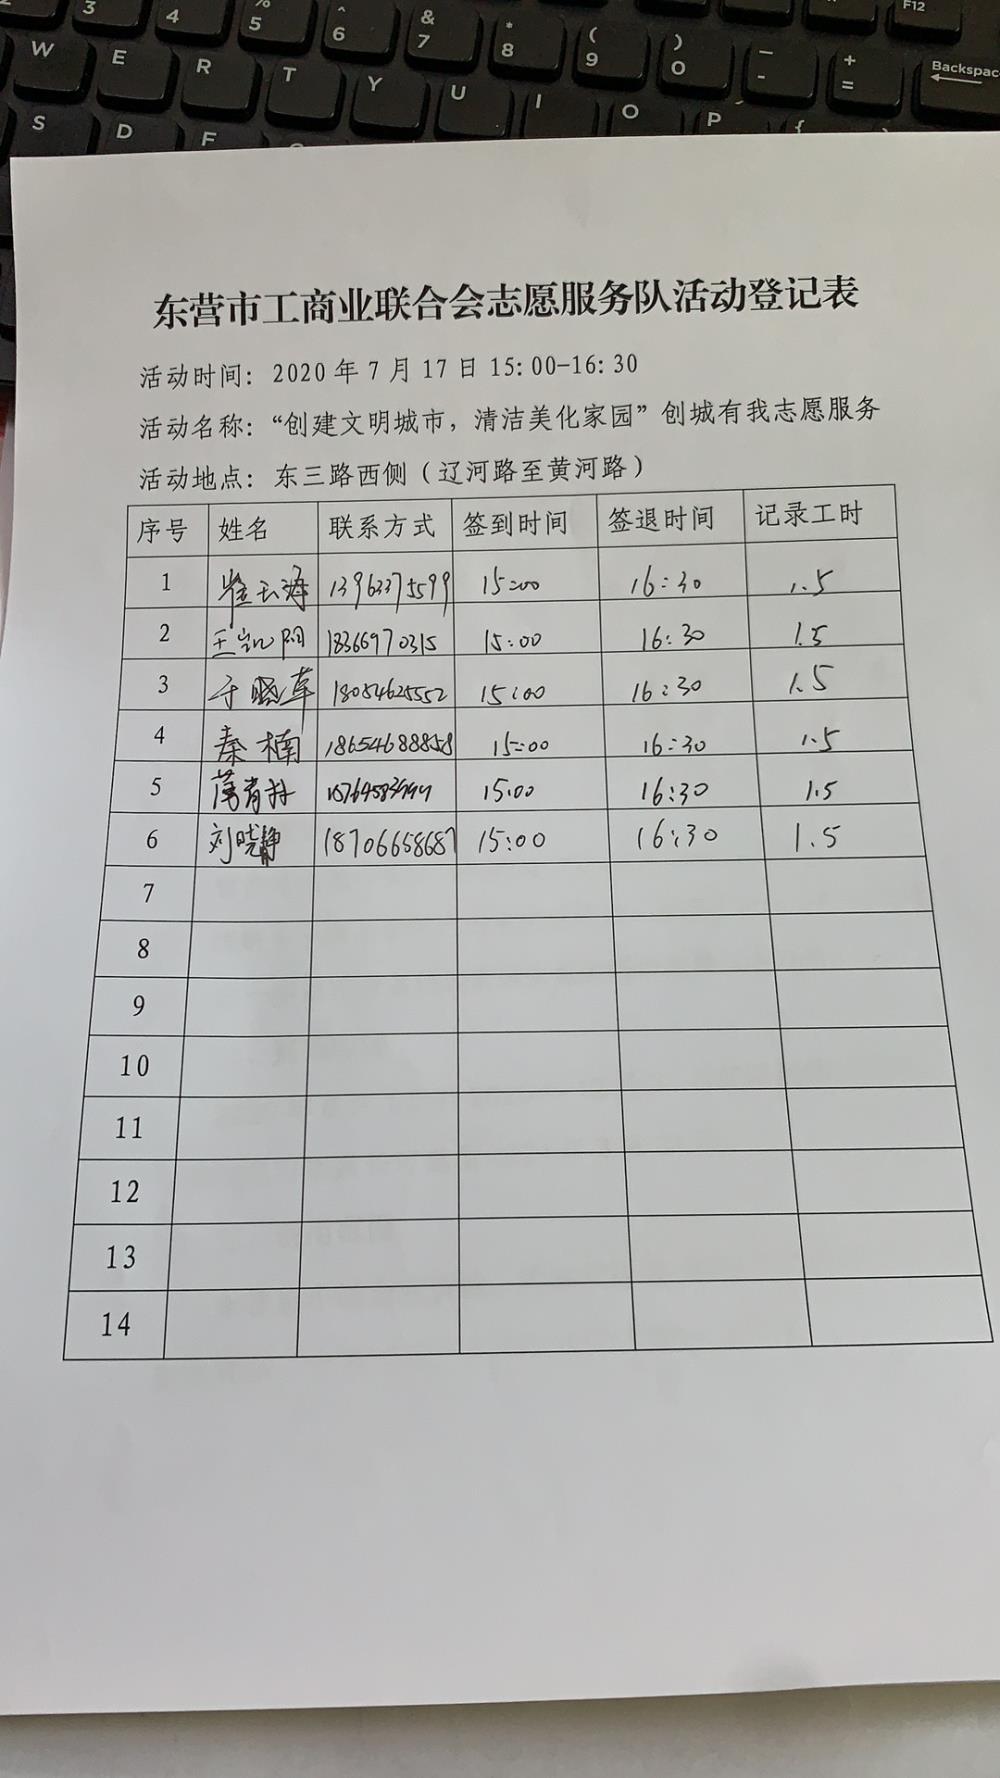 3 4 5 ^ 6 & 7 * 8 ( 9 ) 0 - + = F12
W E R T Y U I O P { Backspac
S D F
东营市工商业联合会志愿服务队活动登记表
活动时间：2020 年 7 月 17 日 15:00-16:30
活动名称：“创建文明城市，清洁美化家园”创城有我志愿服务
活动地点：东三路西侧（辽河路至黄河路）
序号 姓名 联系方式 签到时间 签退时间 记录工时
1 13963375599 15:00 16:30 1.5
2 王凯阳 18366970315 15:00 16:30 1.5
3 于晓草 18054625552 15:00 16:30 1.5
4 秦楠 18654688858 15:00 16:30 1.5
5 15:00 16:30 1.5
6 刘晓静 18706658687 15:00 16:30 1.5
7
8
9
10
11
12
13
14